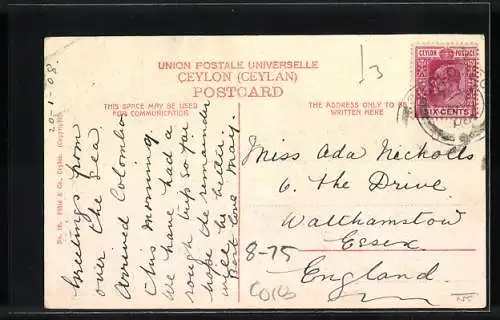 UNION POSTALE UNIVERSELLE
CEYLON (CEYLAN)
POSTCARD
THIS SPACE MAY BE USED
FOR COMMUNICATION
THE ADDRESS ONLY TO BE
WRITTEN HERE
CEYLON POSTAGE
SIX CENTS
20-1-08.
Greetings from
over the Sea.
Arrived Colombo
this morning.
We have had a
rough trip so far
hope the remainder
will be better.
Best love May.
Miss Ada Nicholls
6. The Drive.
Walthamstow
Essex
England.
13
8-75